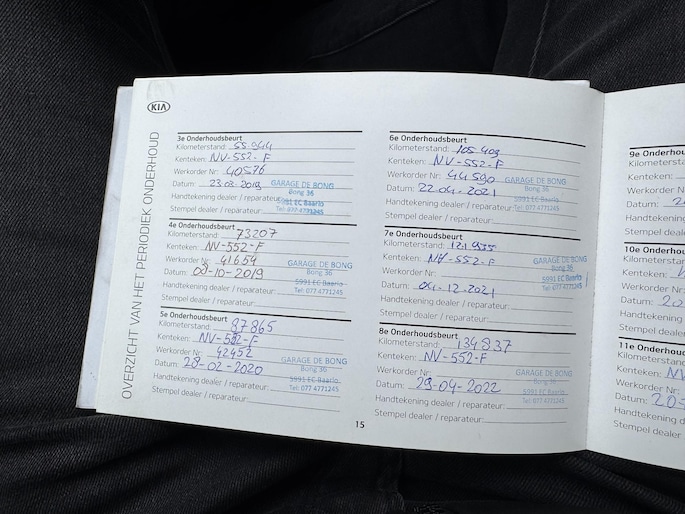 KIA
OVERZICHT VAN HET PERIODIEK ONDERHOUD
3e Onderhoudsbeurt
Kilometerstand: 55.944
Kenteken: NV-552-F
Werkorder Nr: 40576
Datum: 23-03-2019
GARAGE DE BONG
Bong 36
Handtekening dealer / reparateur:
5991 EC Baarlo
Tel: 077-4771245
Stempel dealer / reparateur:
4e Onderhoudsbeurt
Kilometerstand: 73207
Kenteken: NV-552-F
Werkorder Nr: 41654
Datum: 09-10-2019
GARAGE DE BONG
Bong 36
Handtekening dealer / reparateur:
5991 EC Baarlo
Tel: 077 4771245
Stempel dealer / reparateur:
5e Onderhoudsbeurt
Kilometerstand: 87865
Kenteken: NV-552-F
Werkorder Nr: 42452
Datum: 28-02-2020
GARAGE DE BONG
Bong 36
Handtekening dealer / reparateur:
5991 EC Baarlo
Tel: 077 4771245
Stempel dealer / reparateur:
15
6e Onderhoudsbeurt
Kilometerstand: 105.409
Kenteken: NV-552-F
Werkorder Nr: 44590
Datum: 22-04-2021
GARAGE DE BONG
Bong 36
Handtekening dealer / reparateur:
5991 EC Baarlo
Tel: 077-4771245
Stempel dealer / reparateur:
7e Onderhoudsbeurt
Kilometerstand: 121.935
Kenteken: NV-552-F
Werkorder Nr:
Datum: 04-12-2021
GARAGE DE BONG
Bong 36
5991 EC Baarlo
Tel: 077 4771245
Handtekening dealer / reparateur:
Stempel dealer / reparateur:
8e Onderhoudsbeurt
Kilometerstand: 134837
Kenteken: NV-552-F
Werkorder Nr:
Datum: 29-04-2022
GARAGE DE BONG
Bong 36
5991 EC Baarlo
Tel: 077 4771245
Handtekening dealer / reparateur:
Stempel dealer / reparateur:
9e Onderhoud
Kilometerstand
Kenteken:
Werkorder Nr:
Datum:
Handtekening
Stempel dealer
10e Onderhou
Kilometerstand
Kenteken:
Werkorder Nr:
Datum: 20
Handtekening
Stempel deale
11e Onderhoud
Kilometerstand
Kenteken: NV
Werkorder Nr:
Datum: 20
Handtekening
Stempel deale